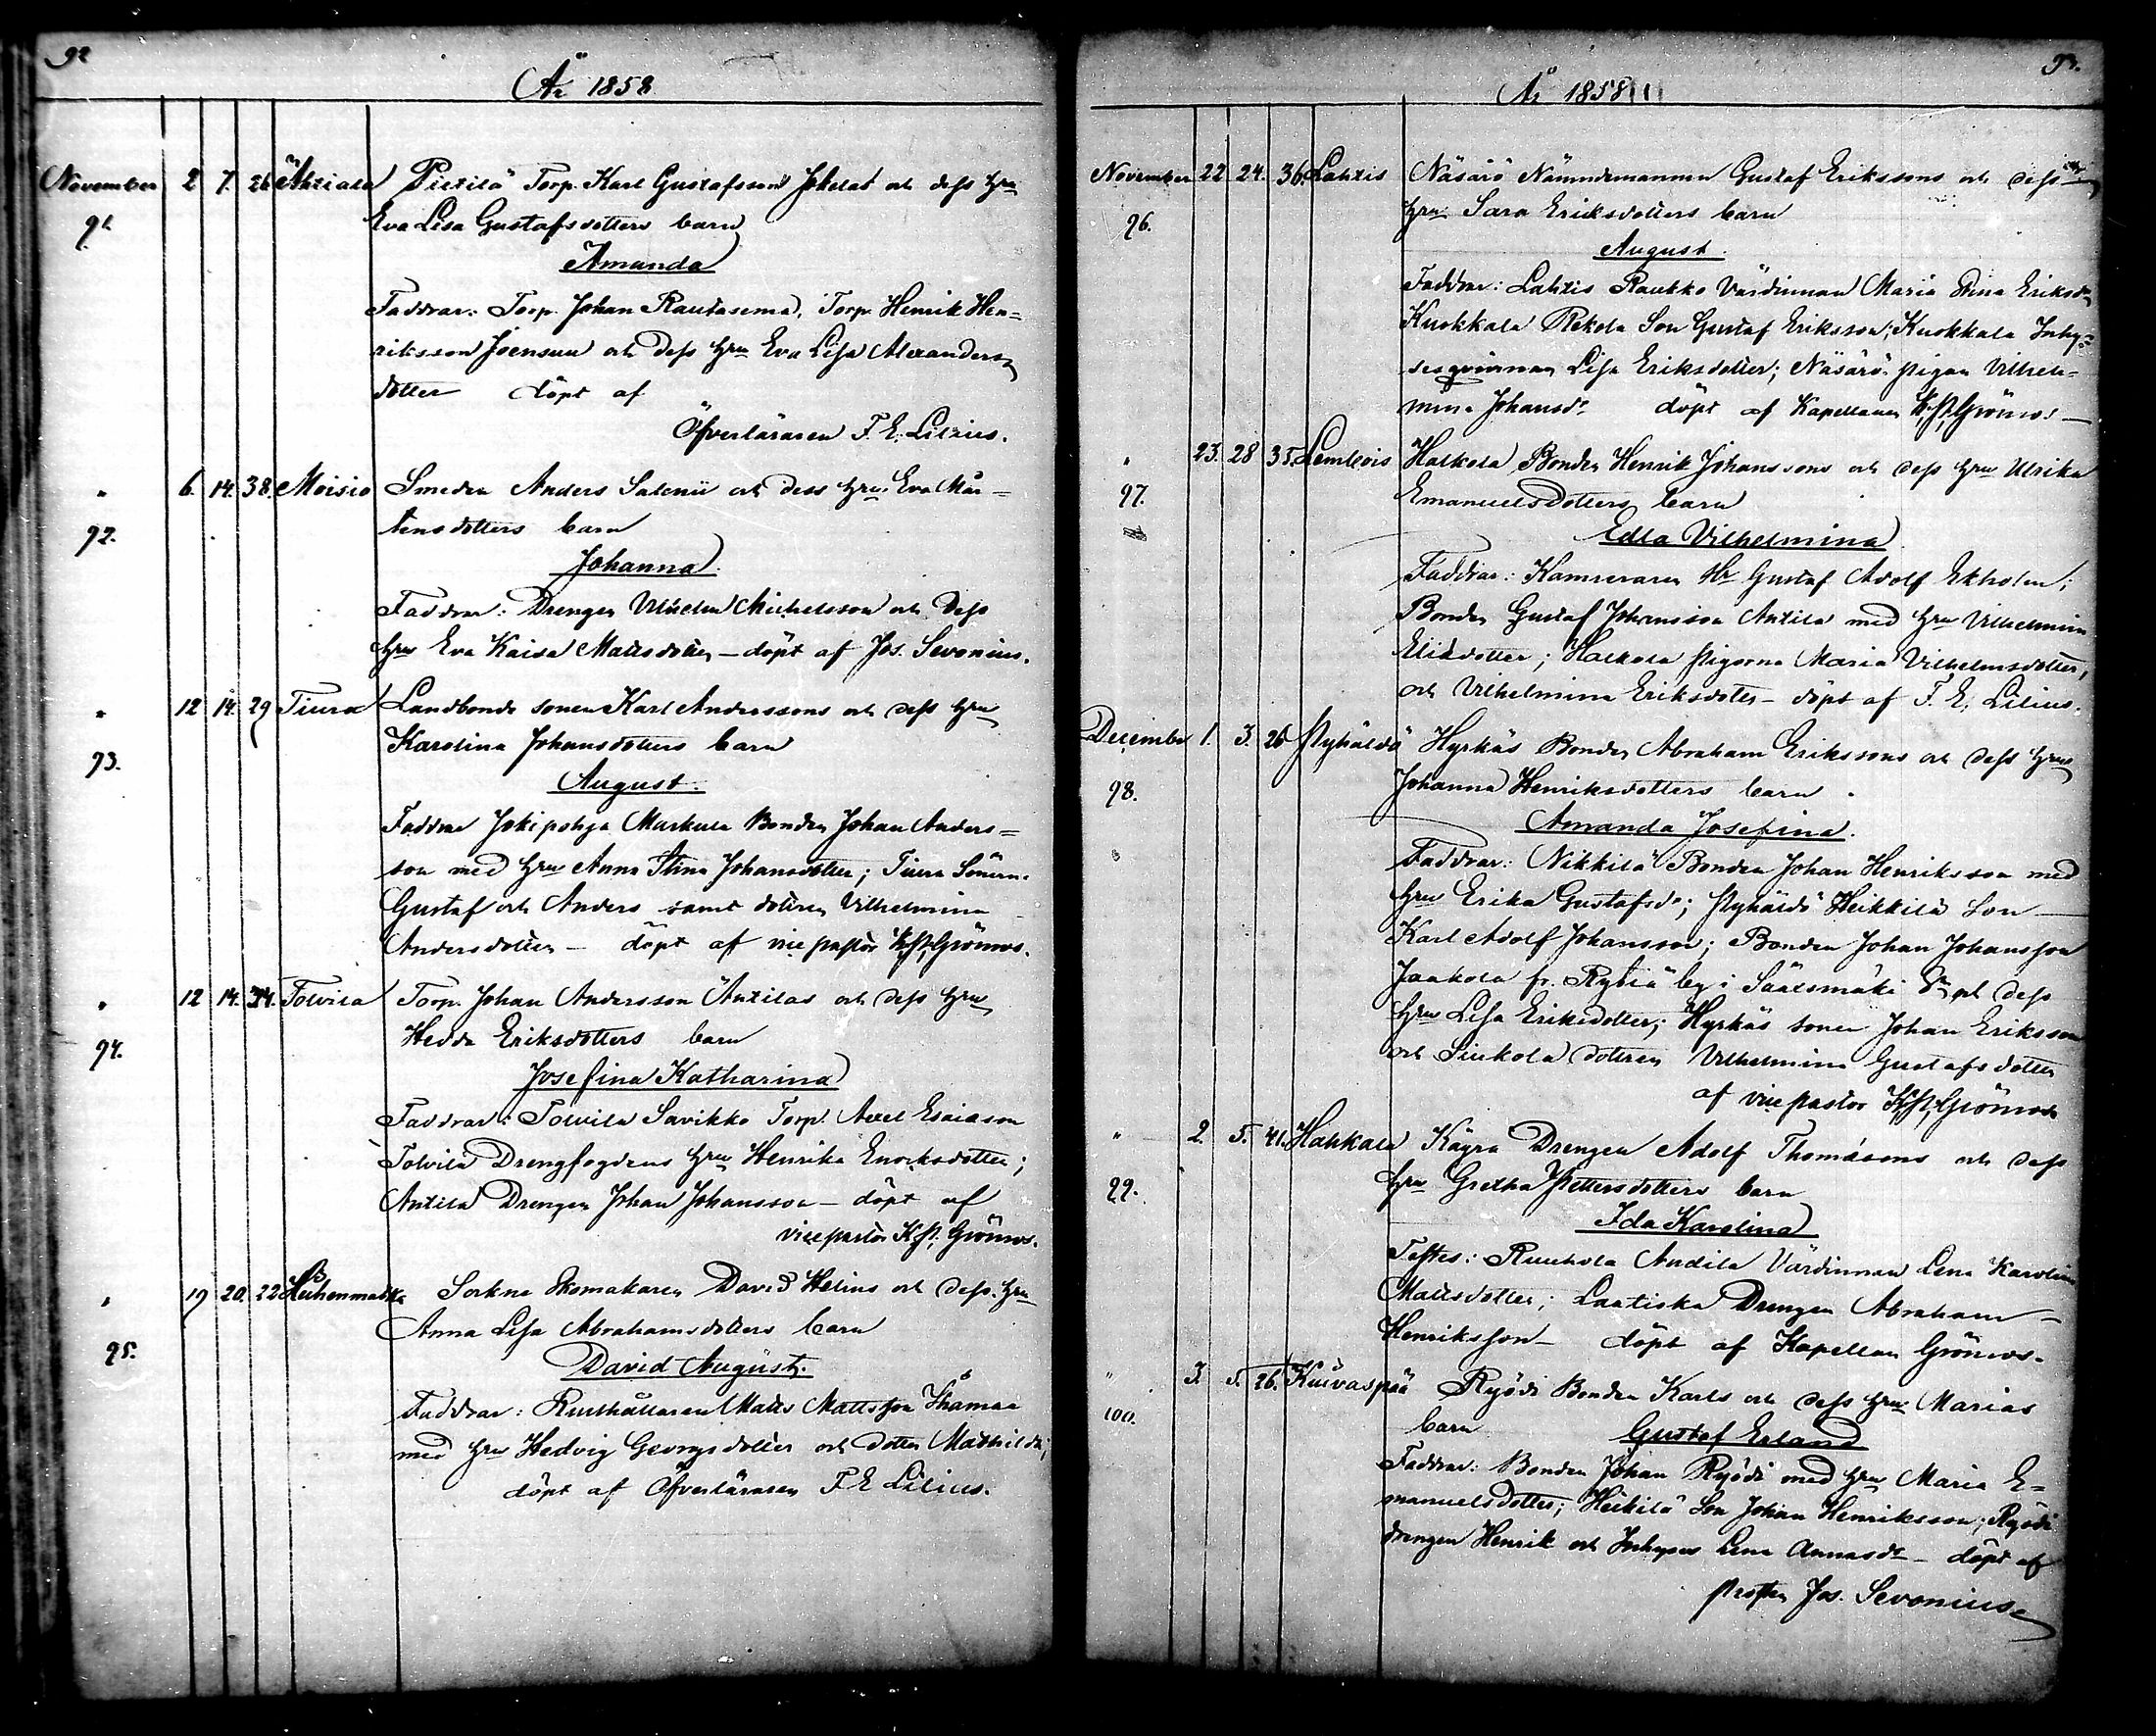 92
År 1858
November 2 7. 26 Ähtiala Pietilä Torp. Karl Gustafssons Jokelas och dess hru
91 Eva Lisa Gustafsdotters barn
Amanda
Faddrar: Torp. Johan Rautasema, Torp. Henrik Hen=
riksson Joensuu och dess hru Eva Lisa Alexanders
dotter döpt af
Öfverläraren F. E. Lilius.
" 6. 14. 38. Moisio Smeden Anders Salenii och dess hru Eva Mår=
92. tensdotters barn
Johanna.
Faddrar: Drengen Vilhelm Michelsson och dess
hru Eva Kaisa Mattsdotter – döpt af Jos. Sevonius.
" 12 14. 29 Tiura Landbonde sonen Karl Anderssons och dess hru
93. Karolina Johansdotters barn
August.
Faddrar Jokipohja Markula Bonden Johan Anders=
son med hru Anna Stina Johansdotter; Tiura Sönerna
Gustaf och Anders samt dottren Vilhelmina
Andersdotter – döpt af vice pastor Grönros.
" 12 14. 34. Tolvila Torp. Johan Andersson Äntilas och dess hru
94. Hedda Eriksdotters barn
Josefina Katharina
Faddrar: Tolvila Savikko Torp. Axel Esaiasson
Tolvila Drengfogdens hru Henrika Enocksdotter;
Antila Drengen Johan Johansson – döpt af
vicepastor Grönros.
" 19 20. 22 Sockne Skomakaren David Helins och dess hru
95. Anna Lisa Abrahamsdotters barn
David August.
Faddrar: Rusthållaren Matts Mattsson
med hru Hedvig Georgsdotter och dotter Mathilda;
döpt af Öfverläraren F E Lilius.
93.
År 1858
November 22 24. 36. Lahtis Näsärö Nämndemannen Gustaf Erikssons och dess
96. hru Sara Eriksdotters barn
August.
Faddrar: Lahtis Rautko Värdinnan Maria Stina Eriksdr
Kuokkala Rekola Son Gustaf Eriksson; Kuokkala Inhy=
sesqvinnan Lisa Eriksdotter; Näsärö pigan Vilhel=
mina Johansdr döpt af Kapellanen Grönros –
" 23. 28 35. Lemlois Halkola Bonden Henrik Johanssons och dess hru Ulrika
97. Emanuelsdotters barn
Edla Vilhelmina
Faddrar: Kamreraren Hr Gustaf Adolf Ekholm;
Bonden Gustaf Johansson Antila med hru Vilhelmina
Eliedotter; Halkola Pigorna Maria Vilhelmsdotter,
och Vilhelmina Eriksdotter – döpt af F. E. Lilius.
December 1. 3. 26 Pyhäldö Hyrkäs Bonden Abraham Erikssons och dess hrus
98. Johanna Henriksdotters barn.
Amanda Josefina.
Faddrar: Nikkilä Bonden Johan Henriksson med
hru Erika Gustafsdr; Pyhäldö Heikkilä Son –
Karl Adolf Johansson; Bonden Johan Johansson
Jaakola fr. by i Sääksmäki Sn och dess
hru Lisa Eriksdotter; Hyrkäs sonen Johan Eriksson
och Siukola dottren Vilhelmina Gustafsdotter
af vice pastor Grönros
" 2. 5. 41. Hahkala Kägra Drengen Adolf Thomassons och dess
99. hru Gretha Pettersdotters barn
Ida Karolina
Testes: Ruuhola Andila Värdinnan Lena Karolina
Mattsdotter; Drengen Abraham –
Henriksson – döpt af Kapellan Grönros.
" 3. 5. 26. Kuivaspää Ryödi Bonden Karls och dess hru Marias
100. barn Gustaf Erland
Faddrar: Bonden Johan Ryödi med hru Maria E=
manuelsdotter; Heikilä Son Johan Henriksson; Ryödi
drengen Henrik och Inhyses Lena Annasdr – döpt af
Prosten Jos. Sevonius